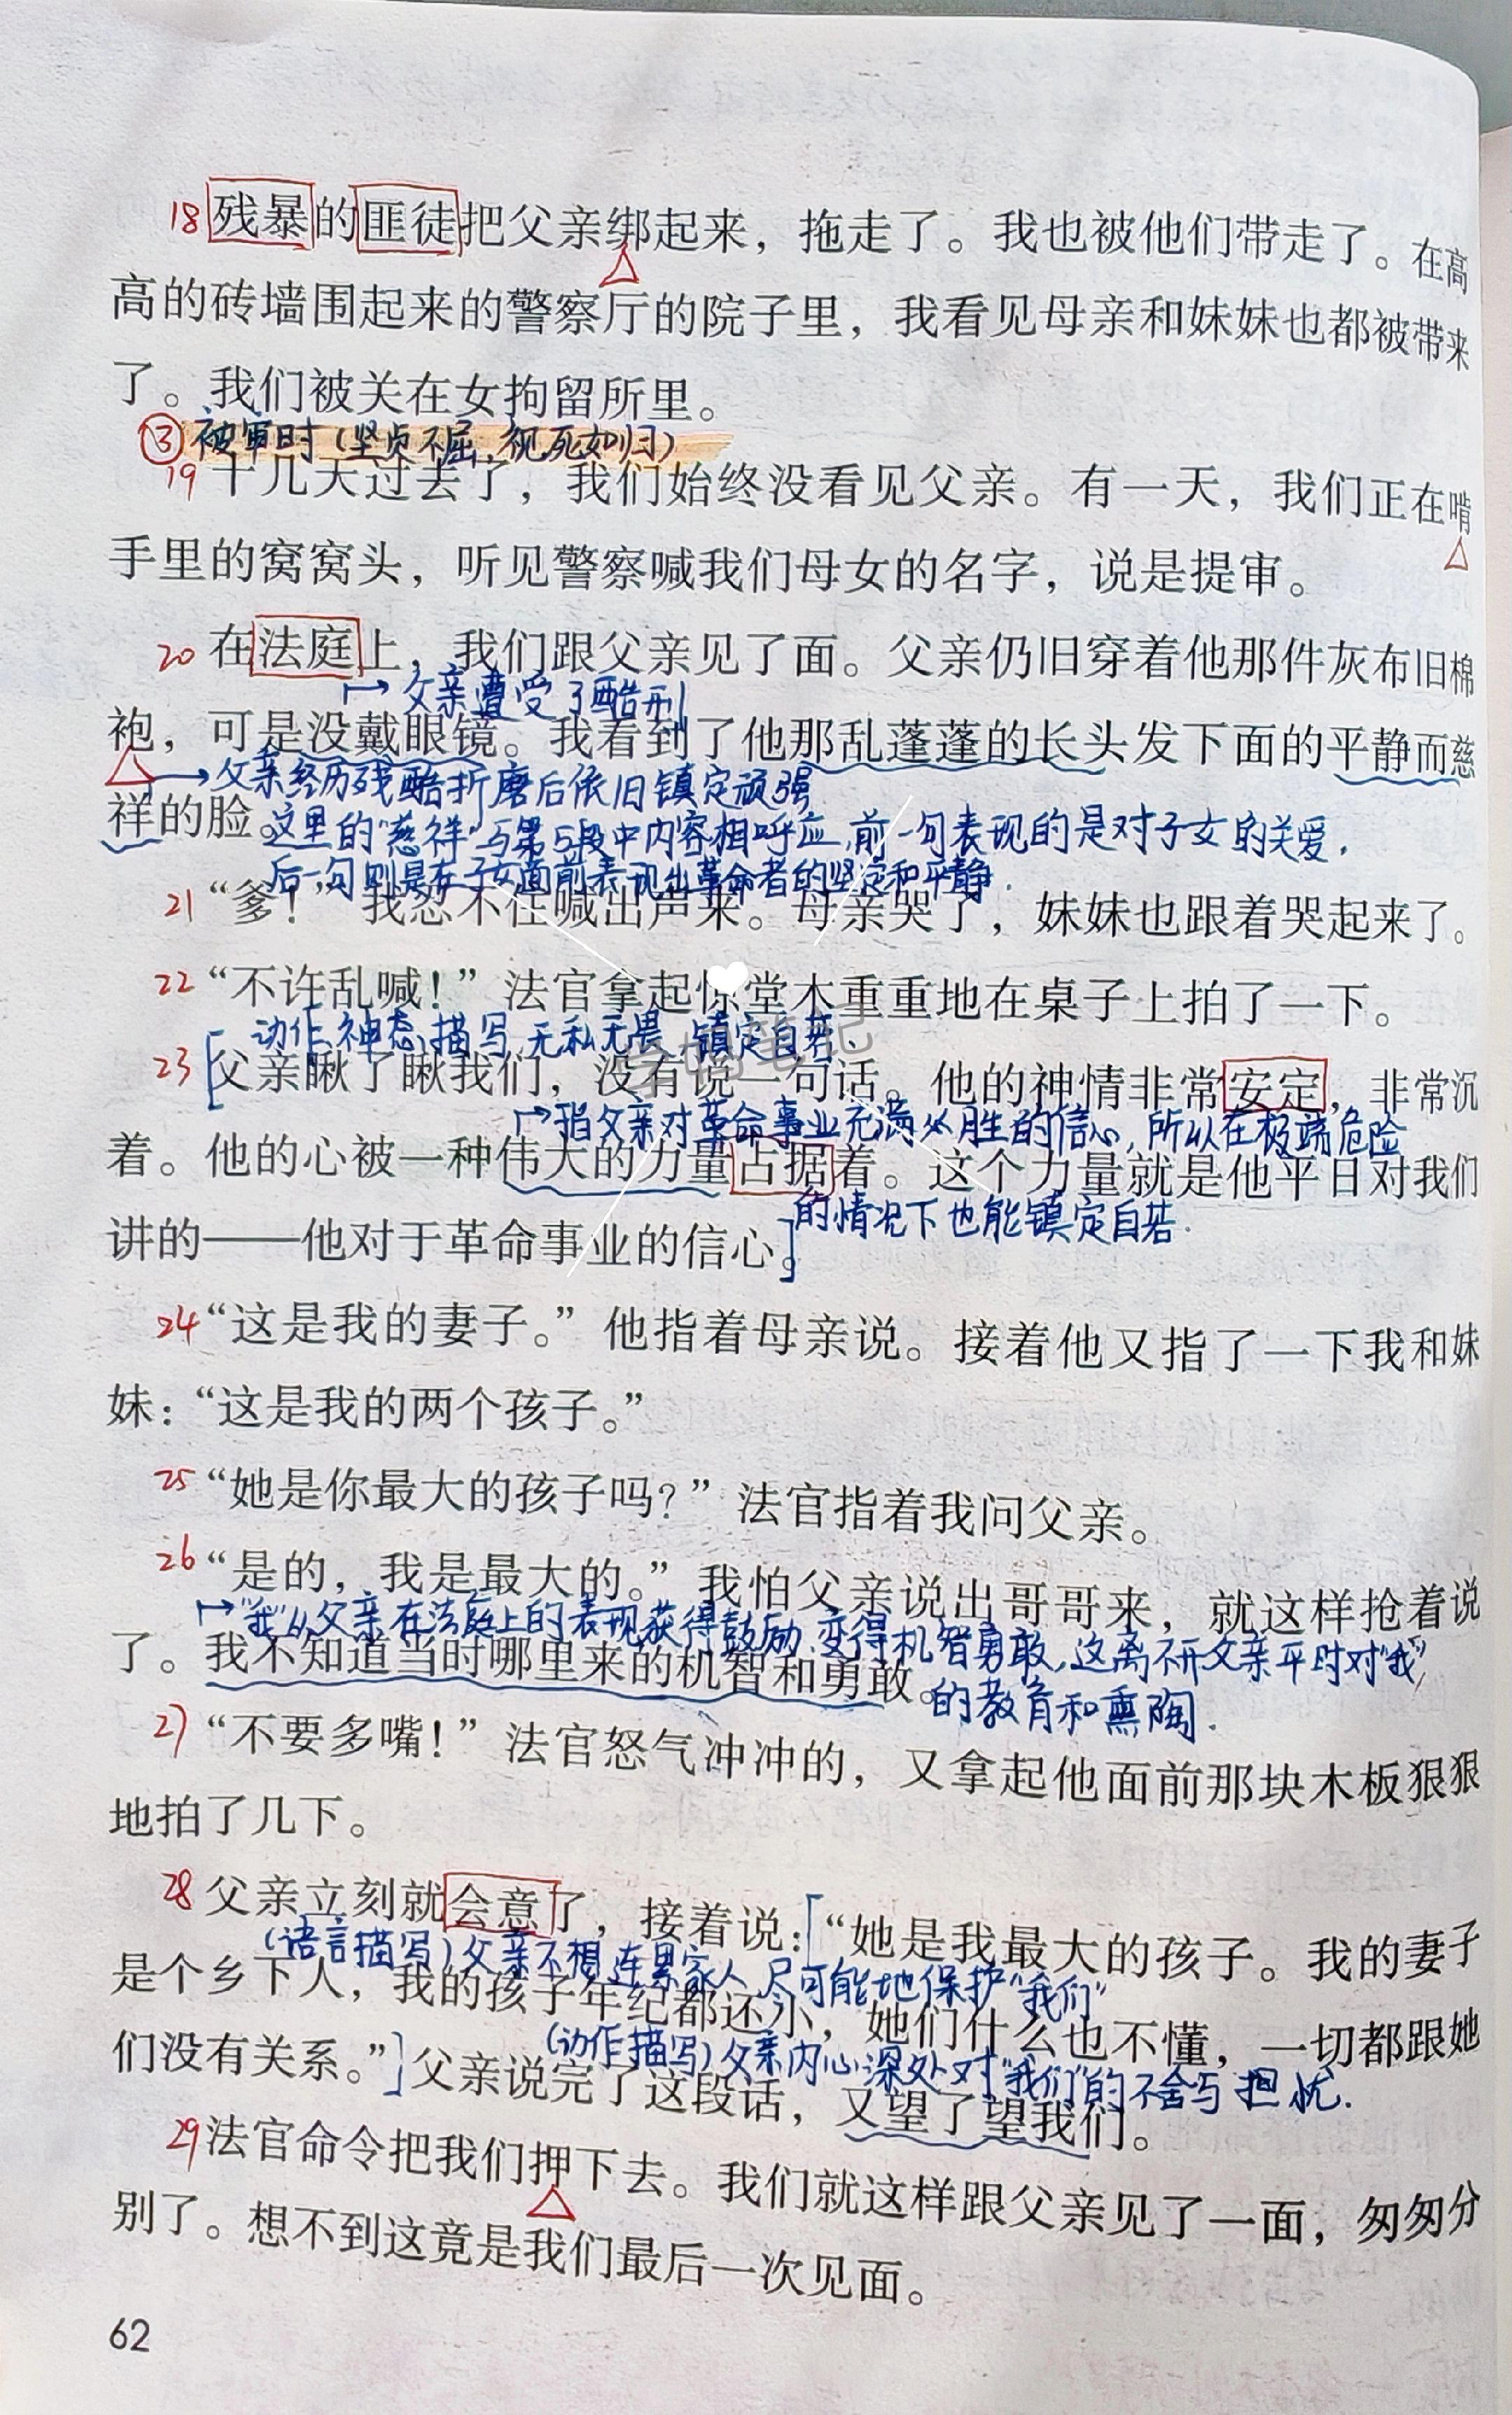 18 残暴的匪徒把父亲绑起来，拖走了。我也被他们带走了。在高
高的砖墙围起来的警察厅的院子里，我看见母亲和妹妹也都被带来
了。我们被关在女拘留所里。
③ 被审时（坚贞不屈、视死如归）
19 十几天过去了，我们始终没看见父亲。有一天，我们正在啃
手里的窝窝头，听见警察喊我们母女的名字，说是提审。
20 在法庭上，我们跟父亲见了面。父亲仍旧穿着他那件灰布旧棉
父亲遭受了酷刑
袍，可是没戴眼镜。我看到了他那乱蓬蓬的长头发下面的平静而慈
父亲经历残酷折磨后依旧镇定顽强
祥的脸。
这里的"慈祥"与第5段中内容相呼应，前一句表现的是对子女的关爱，
后一句则是在子女面前表现出革命者的坚定和平静.
21 “爹！”我忍不住喊出声来。母亲哭了，妹妹也跟着哭起来了。
22 “不许乱喊！”法官拿起惊堂木重重地在桌子上拍了一下。
动作、神态描写，无私无畏、镇定自若、
23 父亲瞅了瞅我们，没有说一句话。他的神情非常安定，非常沉
指父亲对革命事业充满必胜的信心，所以在极端危险
着。他的心被一种伟大的力量占据着。这个力量就是他平日对我们
的情况下也能镇定自若.
讲的——他对于革命事业的信心。
24 “这是我的妻子。”他指着母亲说。接着他又指了一下我和妹
妹：“这是我的两个孩子。”
25 “她是你最大的孩子吗？”法官指着我问父亲。
26 “是的，我是最大的。”我怕父亲说出哥哥来，就这样抢着说
"我"从父亲在法庭上的表现获得鼓励，变得机智勇敢，这离不开父亲平时对"我"
了。我不知道当时哪里来的机智和勇敢。
的教育和熏陶.
27 “不要多嘴！”法官怒气冲冲的，又拿起他面前那块木板狠狠
地拍了几下。
28 父亲立刻就会意了，接着说：“她是我最大的孩子。我的妻子
（语言描写）父亲不想连累家人，尽可能地保护"我们"
是个乡下人，我的孩子年纪都还小，她们什么也不懂，一切都跟她
（动作描写）父亲内心深处对"我们"的不舍与担忧.
们没有关系。”父亲说完了这段话，又望了望我们。
29 法官命令把我们押下去。我们就这样跟父亲见了一面，匆匆分
别了。想不到这竟是我们最后一次见面。
62